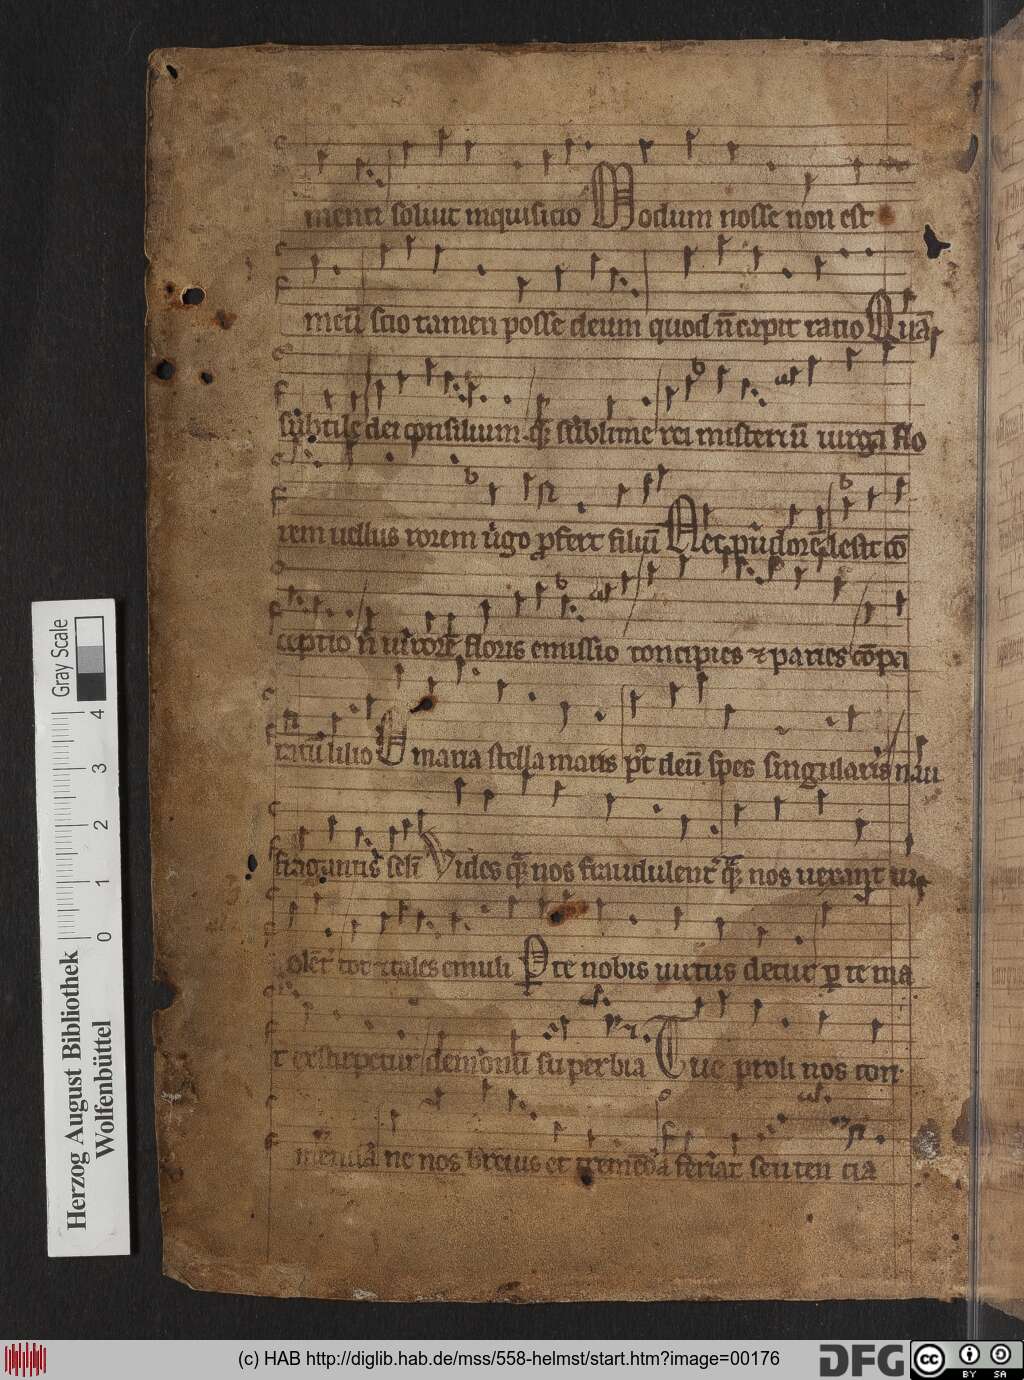 menti soluit inquisicio Modum nosse non est
meū scio tamen posse deum quod n̄ capit ratio Quā
subtile dei consilium quā sublime rei misteriū uirga flo
rem uellus rorem uirgo profert filiū Nec pudorē lesit cō
ceptio n̄ uirorē floris emissio concipies ⁊ paries cōpa
ratū lilio O maria stella maris p̄t deū spes singularis nau
fragantis seculi Vides quā nos fraudulent̄ quā nos uexant ui
olēt̄ tot ⁊ tales emuli Per te nobis uirtus detur per te ma
t̄ exturpetur demonū superbia Tue proli nos con
ne nos breuis et tremēda feriat sentencia
Herzog August Bibliothek
Wolfenbüttel
Gray Scale
0 1 2 3 4
(c) HAB http://diglib.hab.de/mss/558-helmst/start.htm?image=00176
DFG
cc BY SA